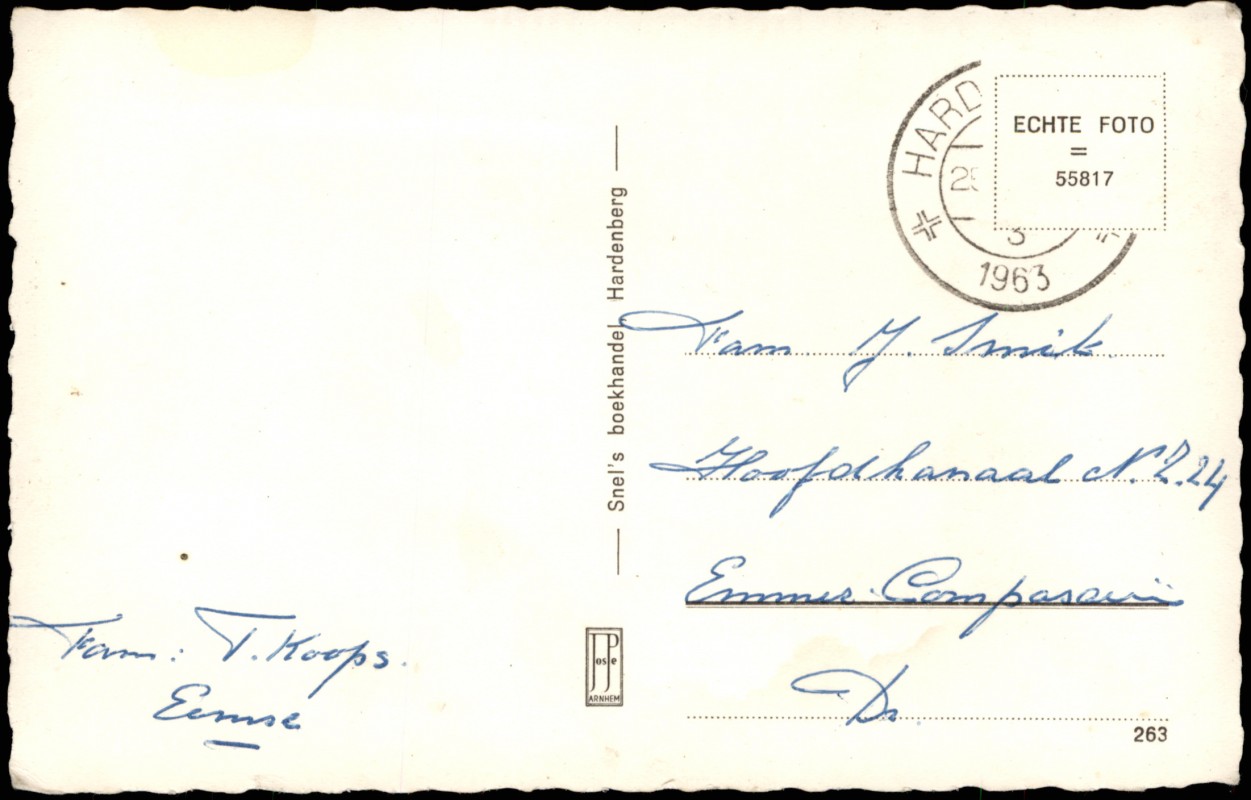 HARD
25
3
1963
ECHTE FOTO
=
55817
Snel's boekhandel Hardenberg
Fam J. Smik
Hoofdkanaal N.Z. 24
Emmer-Compascuü
Dr.
Fam: T. Koops.
JosPe
ARNHEM
263